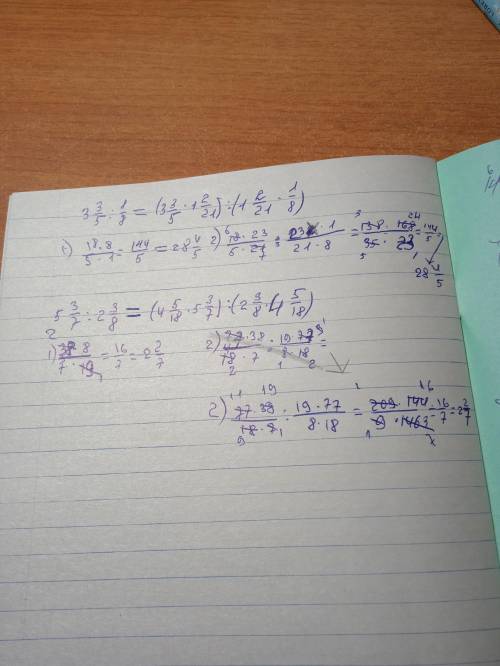 3 3/5 ÷ 1/8 = (3 3/5 · 1 2/21) ÷ (1 2/21 · 1/8)
1) 18·8/5·1 = 144/5 = 28 4/5 2) 18·23/5·21 ÷ 23·1/21·8 = 138·168/35·23 = 144/5
28 4/5
5 3/7 ÷ 2 3/8 = (4 5/18 · 5 3/7) ÷ (2 3/8 · 4 5/18)
1) 38·8/7·19 = 16/7 = 2 2/7 2) 77·38/18·7 · 19·77/8·18 =
2) 77·38/18·7 ÷ 19·77/8·18 = 209·144/9·1463 = 16/7 = 2 2/7